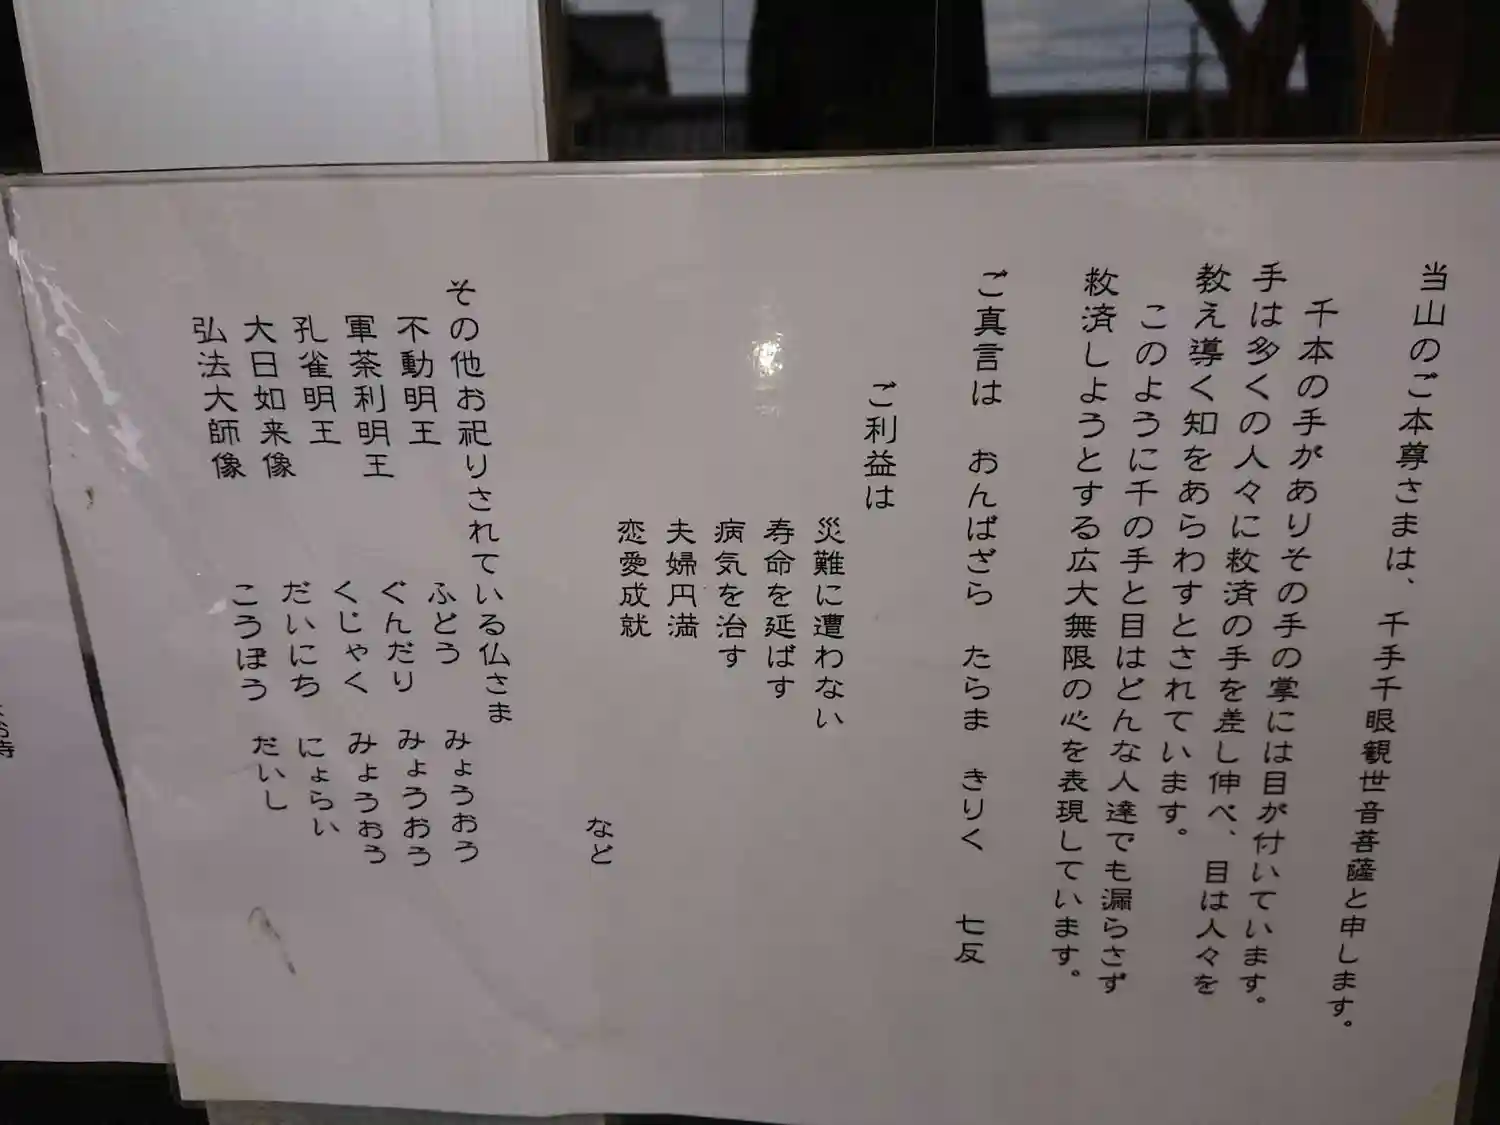 当山のご本尊さまは、千手千眼観世音菩薩と申します。
千本の手がありその手の掌には目が付いています。
手は多くの人々に救済の手を差し伸べ、目は人々を
教え導く知をあらわすとされています。
このように千の手と目はどんな人達でも漏らさず
救済しようとする広大無限の心を表現しています。
ご真言は　おんばざら　たらま　きりく　七反
ご利益は
災難に遭わない
寿命を延ばす
病気を治す
夫婦円満
恋愛成就
など
その他お祀りされている仏さま
不動明王　ふどう　みょうおう
軍茶利明王　ぐんだり　みょうおう
孔雀明王　くじゃく　みょうおう
大日如来像　だいにち　にょらい
弘法大師像　こうぼう　だいし
お寺